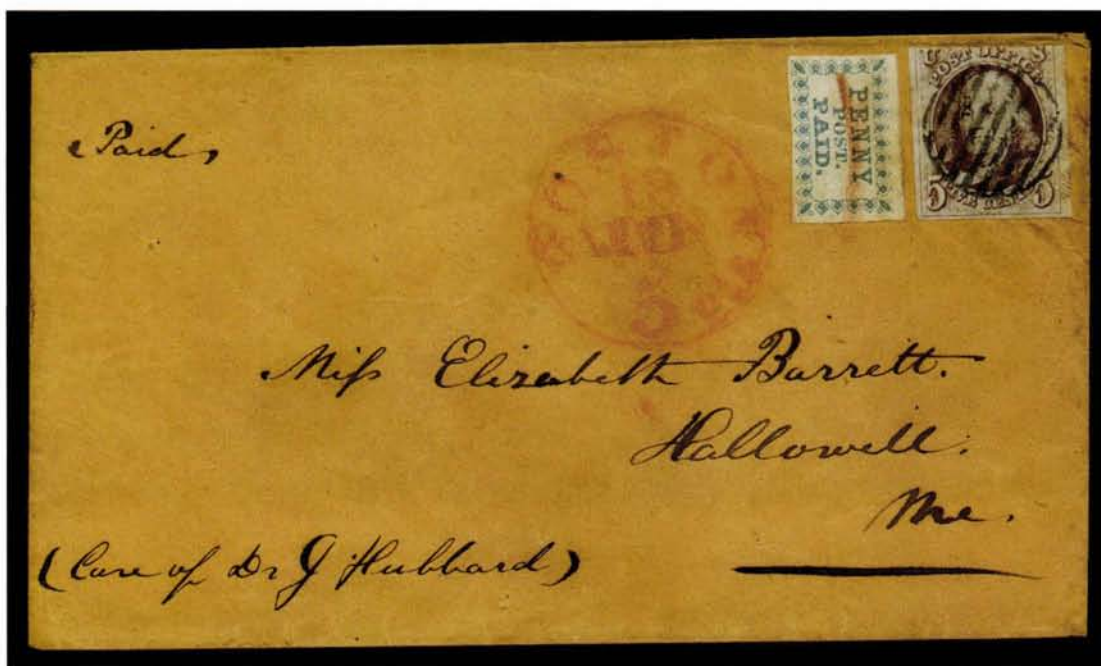 Paid,
PENNY
POST.
PAID.
U S
POST OFFICE
FIVE CENTS
5 5
BOSTON
18
AUG
5 cts
Miss Elizabeth Barrett.
Hallowell.
Me.
(Care of Dr J Hubbard)